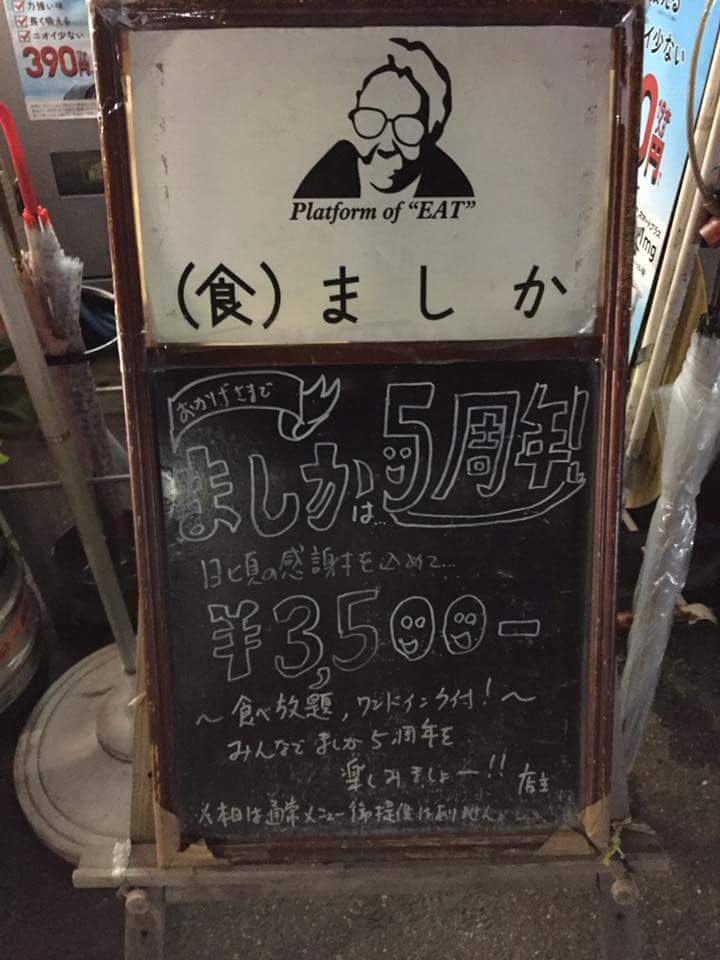 力強い味
長く吸える
ニオイ少ない
390円
イ少ない
円
1mg
Platform of “EAT”
(食)ましか
おかげさまで
ましかは...5周年!!
日頃の感謝を込めて...
¥3,500-
～食べ放題,ワンドインク付!～
みんなでましか5周年を
楽しみましょー!! 店主
※本日は通常メニュー御提供はありません